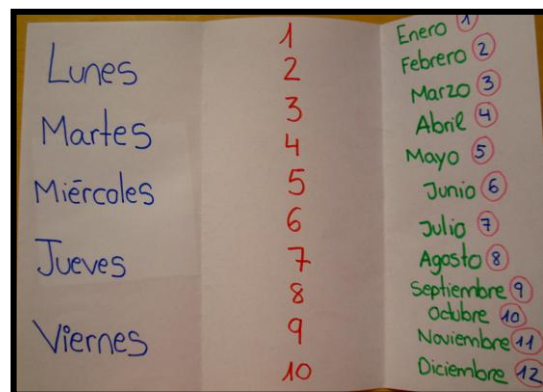 Lunes
Martes
Miércoles
Jueves
Viernes
1
2
3
4
5
6
7
8
9
10
Enero 1
Febrero 2
Marzo 3
Abril 4
Mayo 5
Junio 6
Julio 7
Agosto 8
Septiembre 9
Octubre 10
Noviembre 11
Diciembre 12